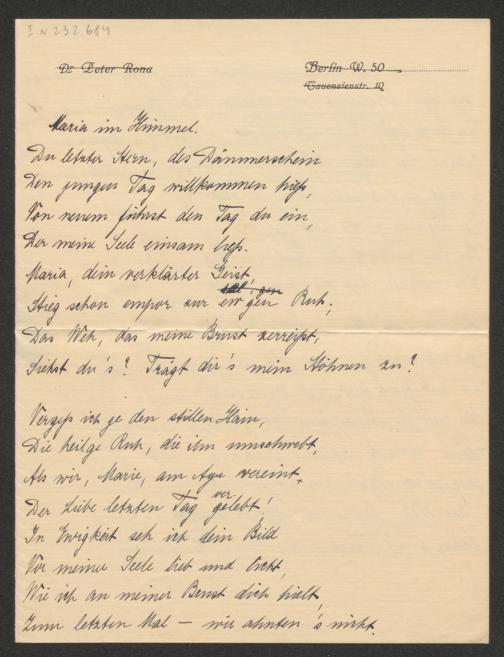 I N. 232.684
Dr Peter Rona
Berlin W. 50
Tauenzienstr. 10
Maria im Himmel.
Du letzter Stern, des Dämmerschein
Den jungen Tag willkommen hieß,
Von neuem führst den Tag du ein,
Der meine Seele einsam ließ.
Maria, dein verklärter Geist,
Stieg schon empor zur ew'gen Ruh;
Das Weh, das meine Brust zerreißt,
Siehst du's? Trägt dir's mein Stöhnen zu?
Vergeß ich je den stillen Hain,
Die heilge Ruh, die ihn umschwebt,
Als wir, Marie, am Ayr vereint,
Der Liebe letzten Tag verlebt!
In Ewigkeit seh ich dein Bild
Vor meiner Seele lieb und licht,
Wie ich an meiner Brust dich hielt,
Zum letzten Mal — wir ahnten's nicht.